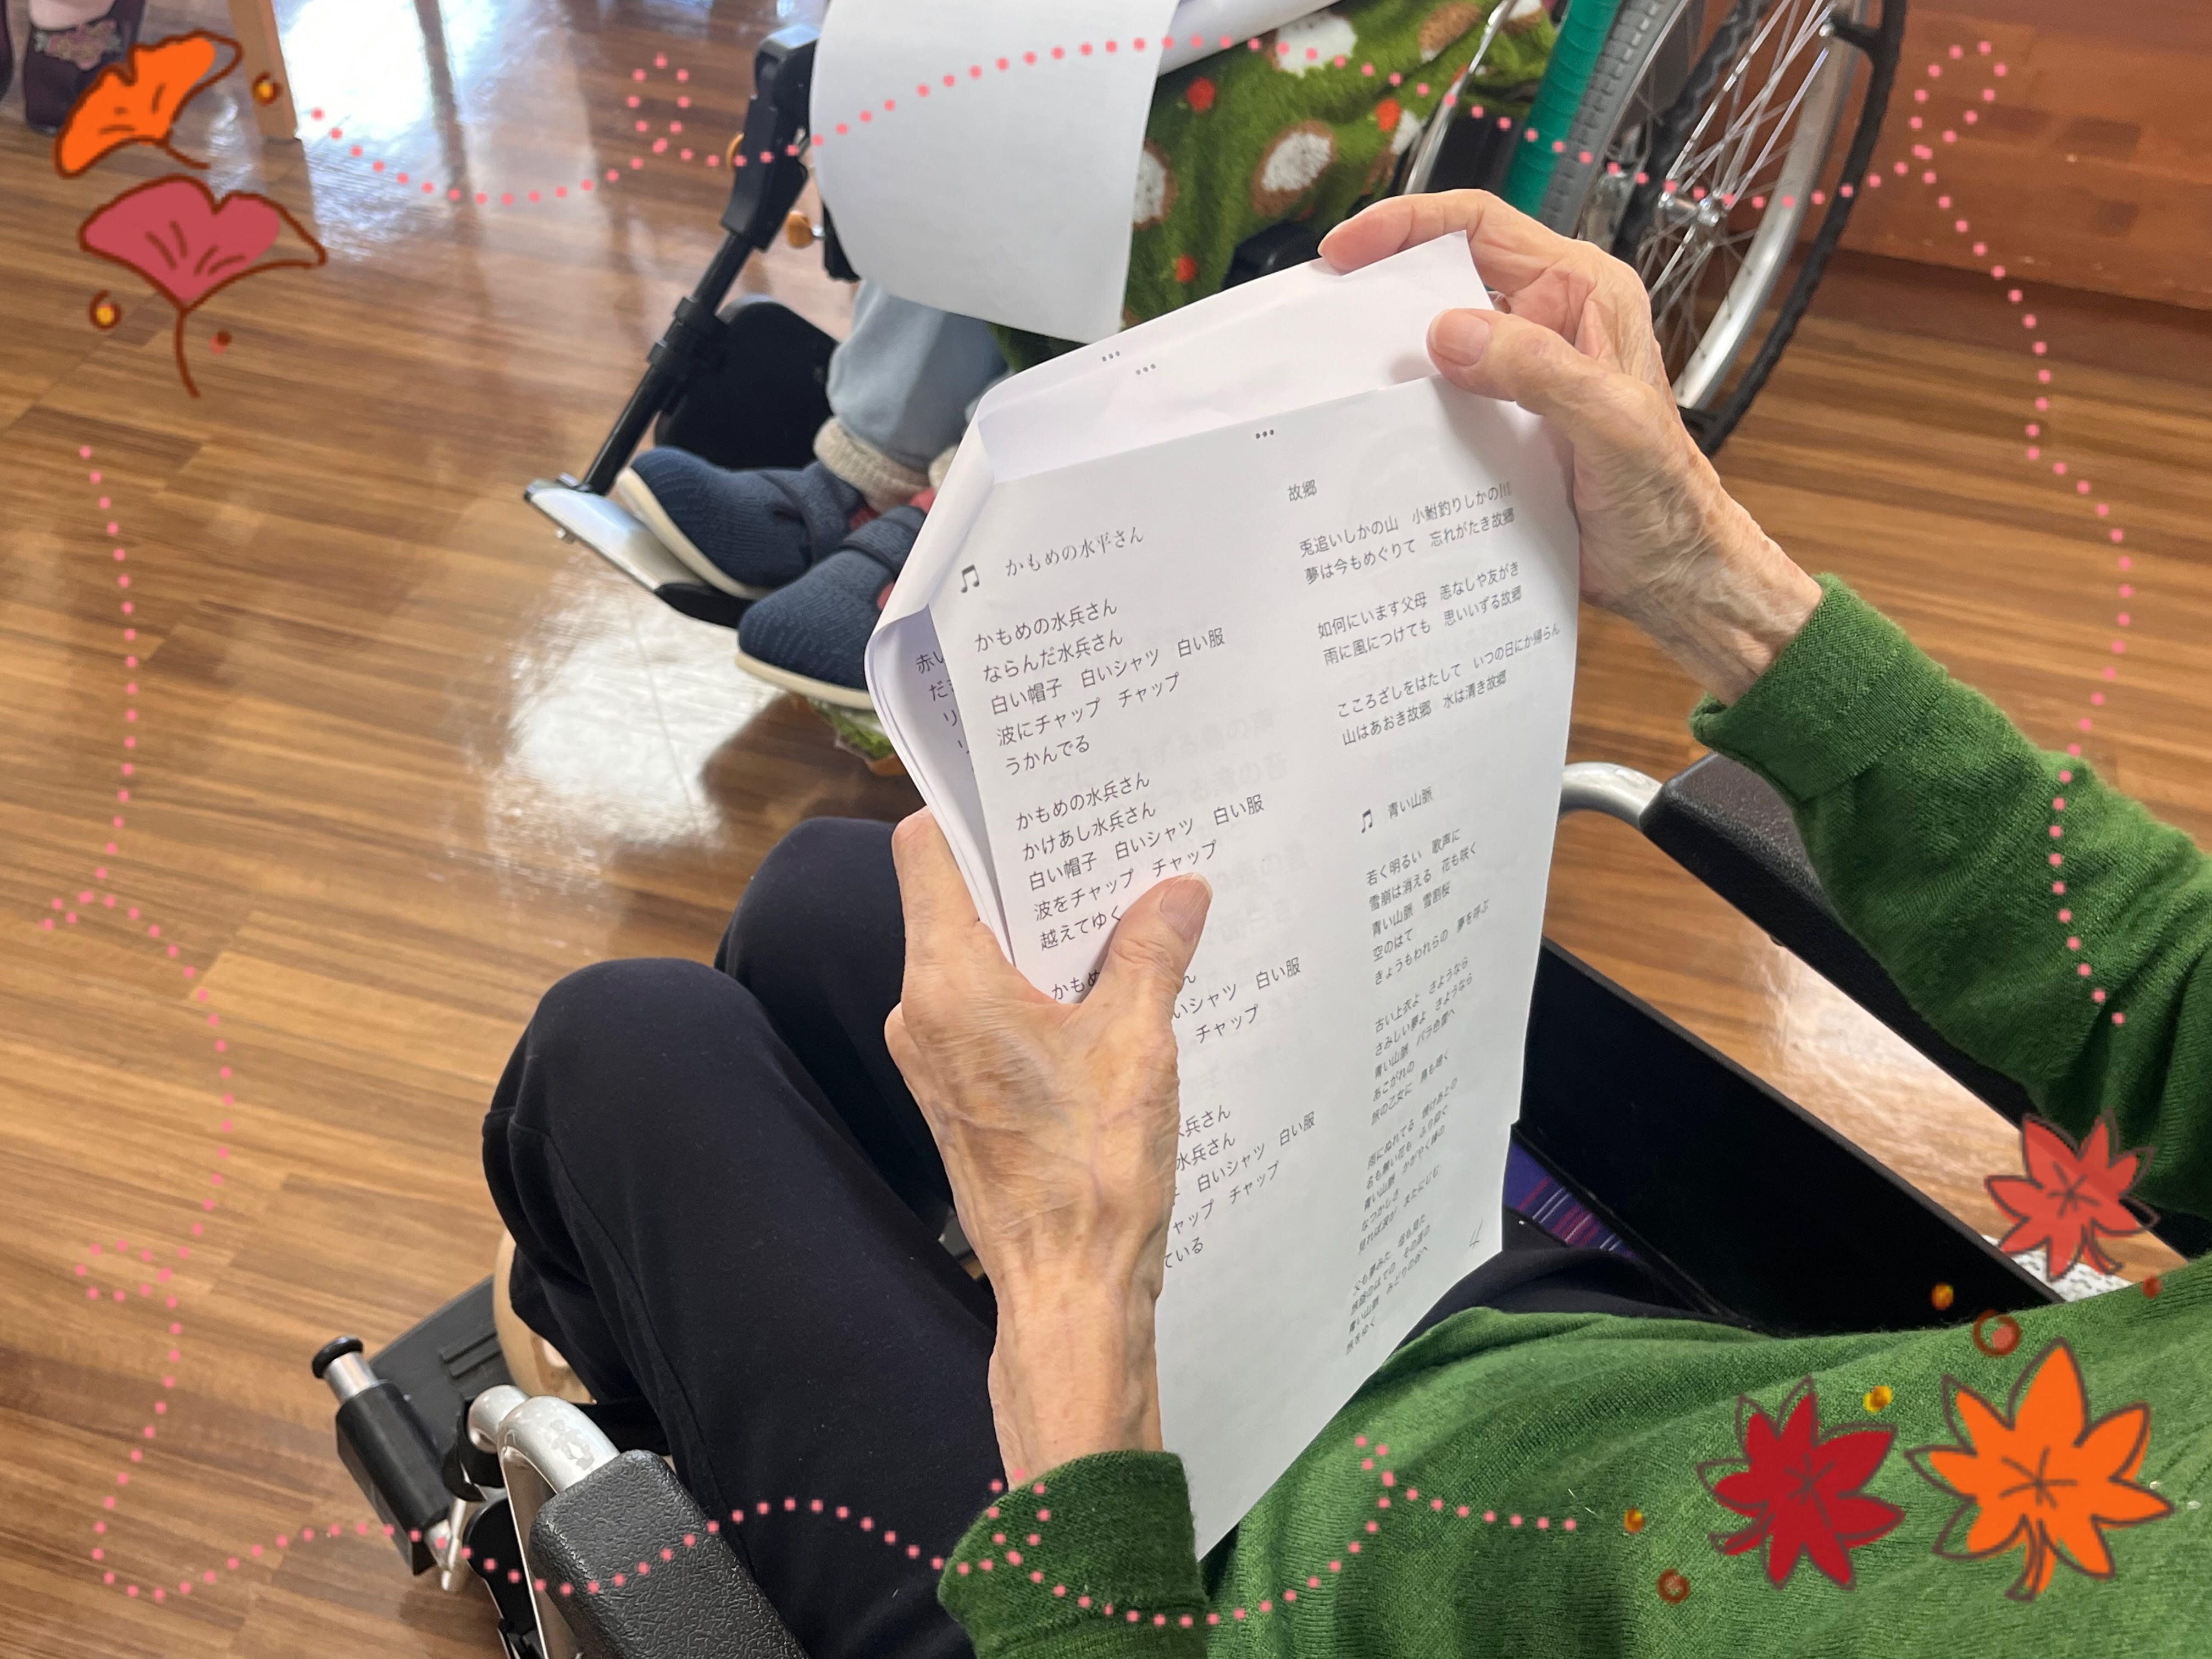 ♫ かもめの水平さん
かもめの水兵さん
ならんだ水兵さん
白い帽子 白いシャツ 白い服
波にチャップ チャップ
うかんでる
かもめの水兵さん
かけあし水兵さん
白い帽子 白いシャツ 白い服
波をチャップ チャップ
越えてゆく
かもめ
いシャツ 白い服
チャップ
兵さん
水兵さん
白いシャツ 白い服
ャップ チャップ
ている
故郷
兎追いしかの山 小鮒釣りしかの川
夢は今もめぐりて 忘れがたき故郷
如何にいます父母 恙なしや友がき
雨に風につけても 思いいずる故郷
こころざしをはたして いつの日にか帰らん
山はあおき故郷 水は清き故郷
♫ 青い山脈
若く明るい 歌声に
雪崩は消える 花も咲く
青い山脈 雪割桜
空のはて
きょうもわれらの 夢を呼ぶ
古い上衣よ さようなら
さみしい夢よ さようなら
青い山脈 バラ色雲へ
あこがれの
旅の乙女に 鳥も啼く
雨にぬれてる 焼けあとの
名も無い花も ふり仰ぐ
青い山脈 かがやく嶺の
なつかしさ
見れば涙が またにじむ
父も夢みた 母も見た
旅路のはての その涯の
青い山脈 みどりの谷へ
旅をゆく
4
赤い
だ
リ